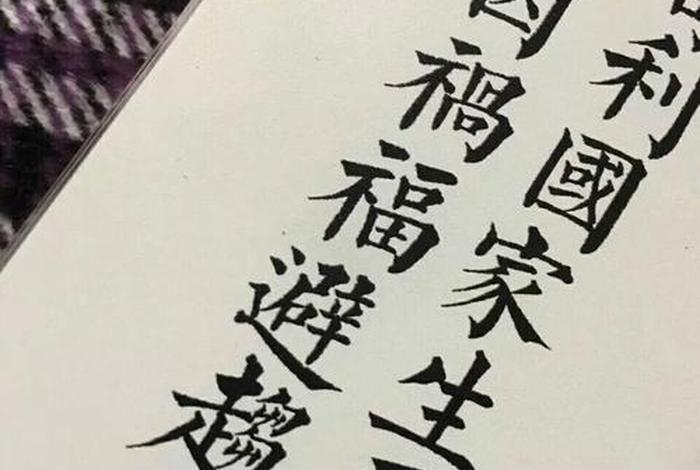 利國家生
因禍福避趨